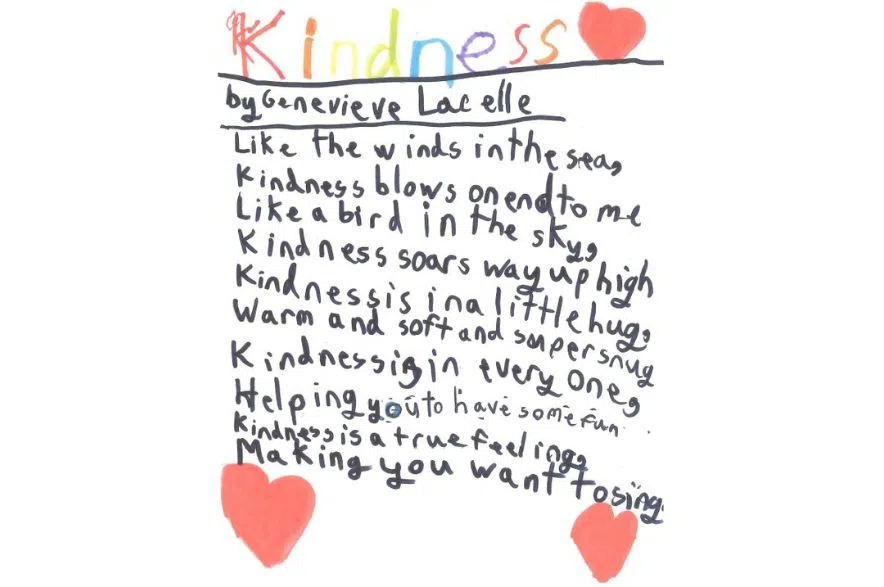 Kindness
by Genevieve Lacelle
Like the winds in the sea,
Kindness blows on end to me
Like a bird in the sky,
Kindness soars way up high
Kindness is in a little hug,
Warm and soft and super snug
Kindness is in every one,
Helping you to have some fun.
Kindness is a true feeling,
Making you want to sing.